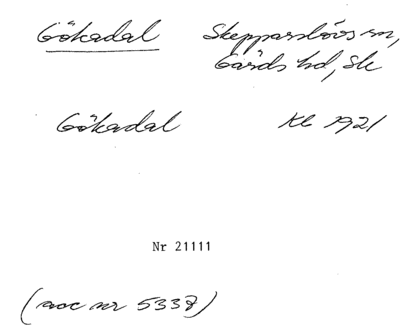 Gökadal Skepparslövs sn,
Gärds hd, Sk
Gökadal Kl 1921
Nr 21111
(acc nr 5338)